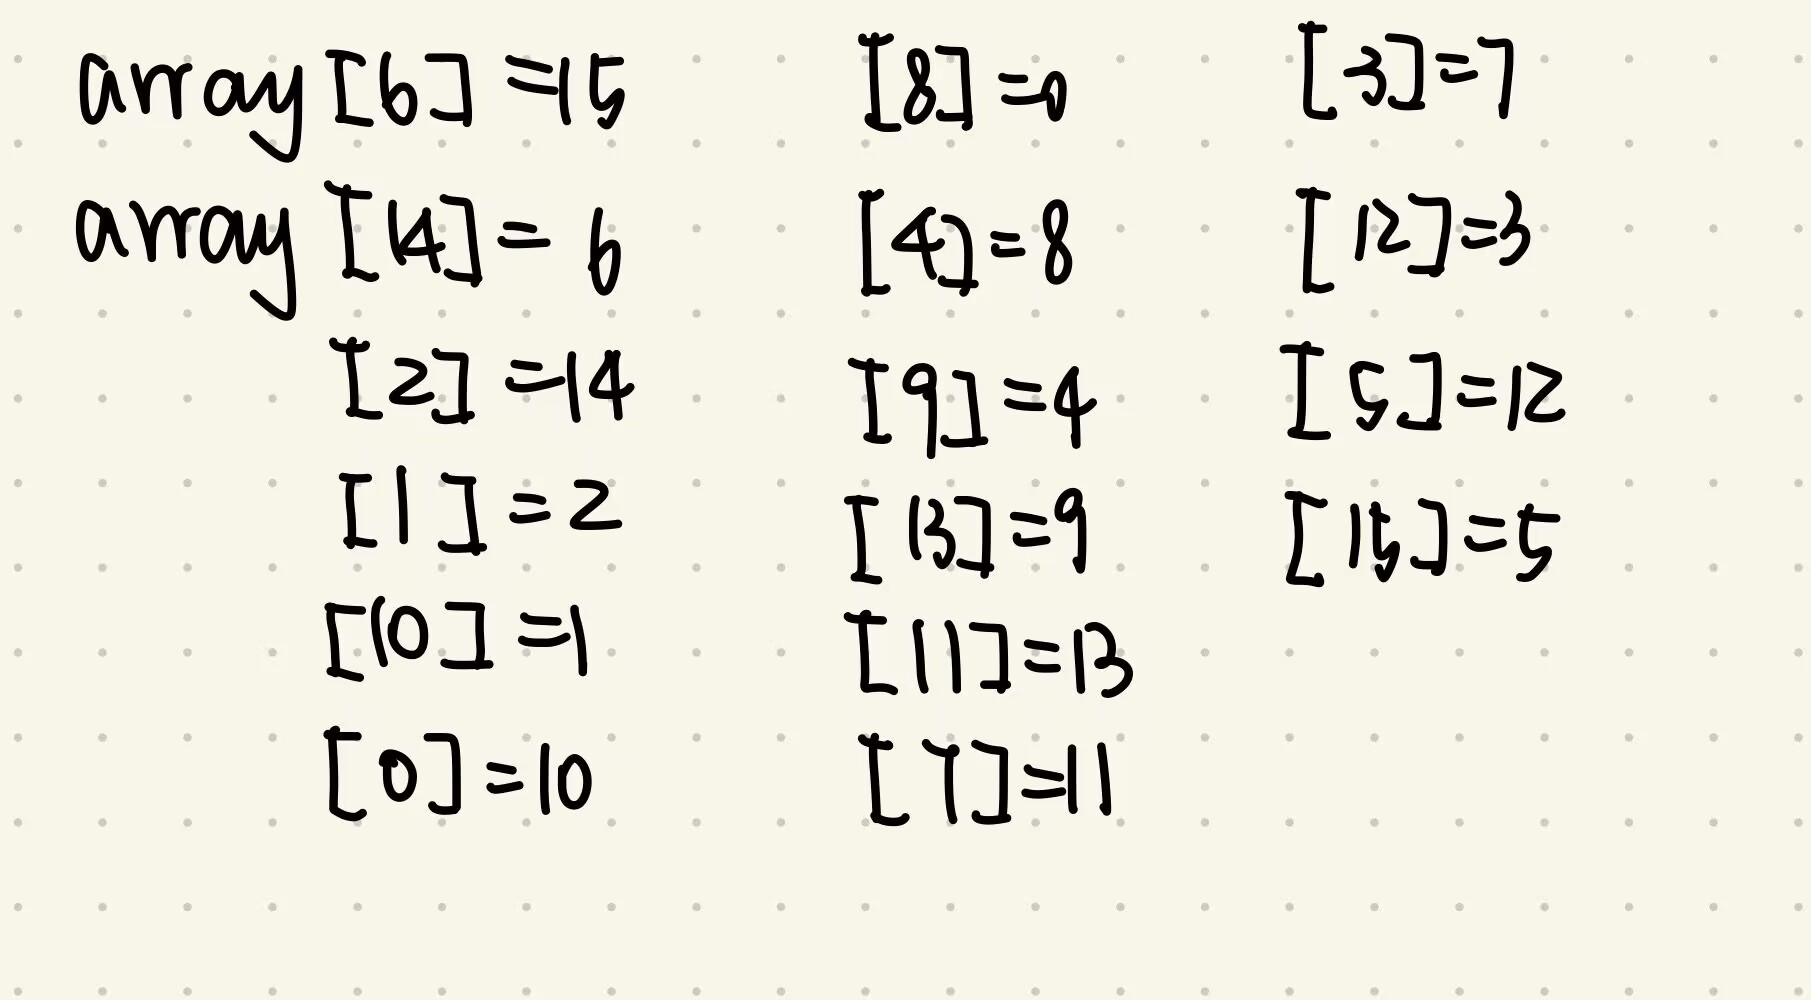 array [6] =15
array [14] = 6
[2] =14
[1] = 2
[10] =1
[0] =10
[8] =0
[4] =8
[9] =4
[13] =9
[11] =13
[7] =11
[3] =7
[12] =3
[5] =12
[15] =5